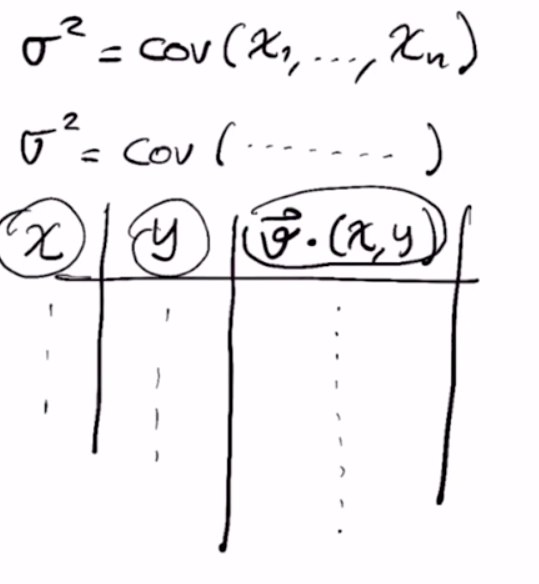 σ² = cov(x₁, ..., xₙ)
σ² = cov(........)
x | y | v⃗·(x,y) |